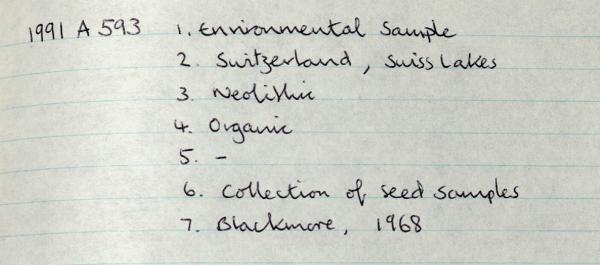 1991 A 593 1. Environmental Sample
2. Switzerland, Swiss Lakes
3. Neolithic
4. Organic
5. -
6. Collection of seed samples
7. Blackmore, 1968